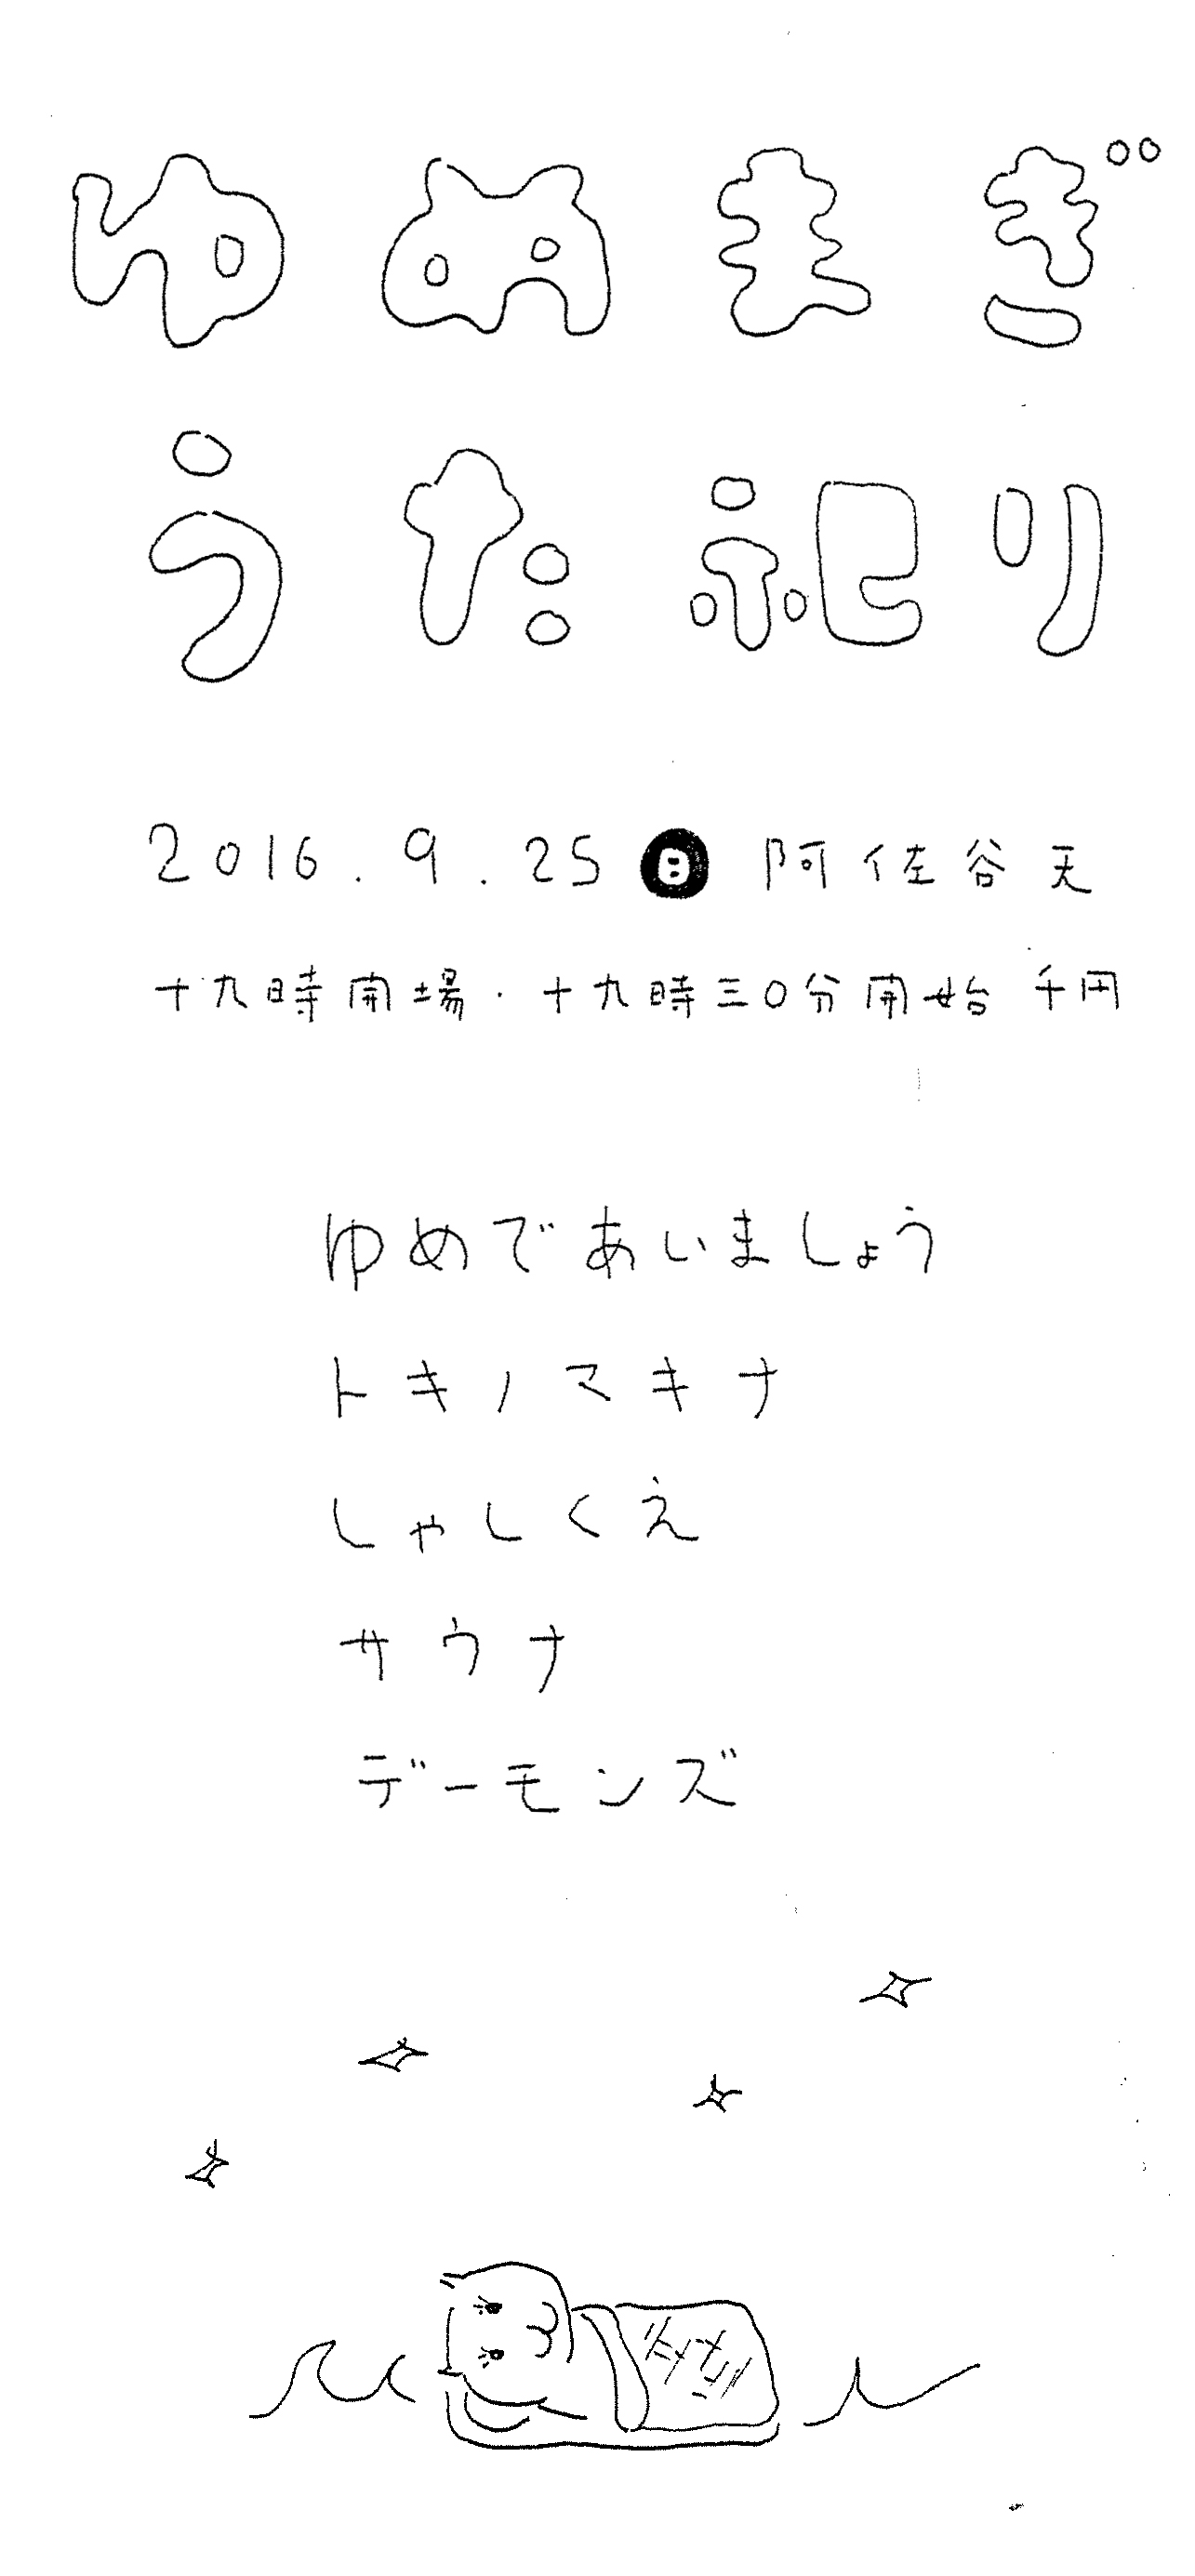 ゆめまぎ
うた祀り
2016.9.25 日 阿佐谷天
十九時開場・十九時三〇分開始 千円
ゆめであいましょう
トキノマキナ
しゃしくえ
サウナ
デーモンズ